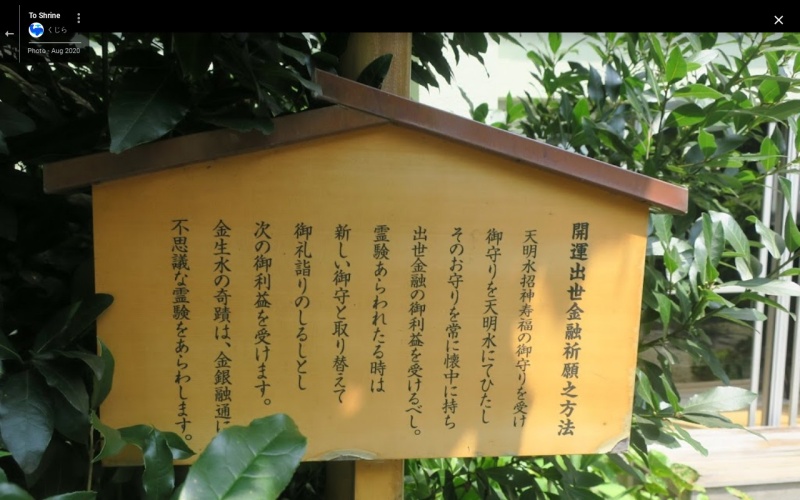 To Shrine
くじら
Photo - Aug 2020
開運出世金融祈願之方法
天明水招神寿福の御守りを受け
御守りを天明水にてひたし
そのお守りを常に懐中に持ち
出世金融の御利益を受けるべし。
霊験あらわれたる時は
新しい御守と取り替えて
御礼詣りのしるしとし
次の御利益を受けます。
金生水の奇蹟は、金銀融通に
不思議な霊験をあらわします。